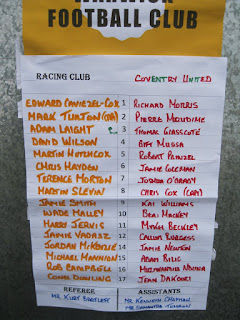 WARWICK
FOOTBALL CLUB
RACING CLUB COVENTRY UNITED
EDWARD CANIEZEL-COX 1 RICHARD MORRIS
MARK TURTON (GK) 2 PIERRE MOUDIME
ADAM LAIGHT 3 THOMAS GLASSCOTE
DAVID WILSON 4 GIFT MUSSA
MARTIN HUTCHCOX 5 ROBERT PRINZEL
CHRIS HAYDEN 6 JAMIE
TERENCE MORTON 7 JORDAN O'GRADY
MARTIN SLEVIN 8 CHRIS COX
JAMIE SMITH 9 KAI WILLIAMS
WADE MALLEY 10 BEN MACKEY
HARRY JERVIS 11 MITCH
JAMIE VADASZ 12 CALLUM BURGESS
JORDAN McKENZIE 14 JAMIE NEWTON
MICHAEL MANNION 15 ADAM BILIC
ROB CAMPBELL 16
CONNE DOWLING 17 JEAN DAKOURI
REFEREE ASSISTANTS
MR KURT MR KENNETH CHAPMAN
MR SAMANTHA